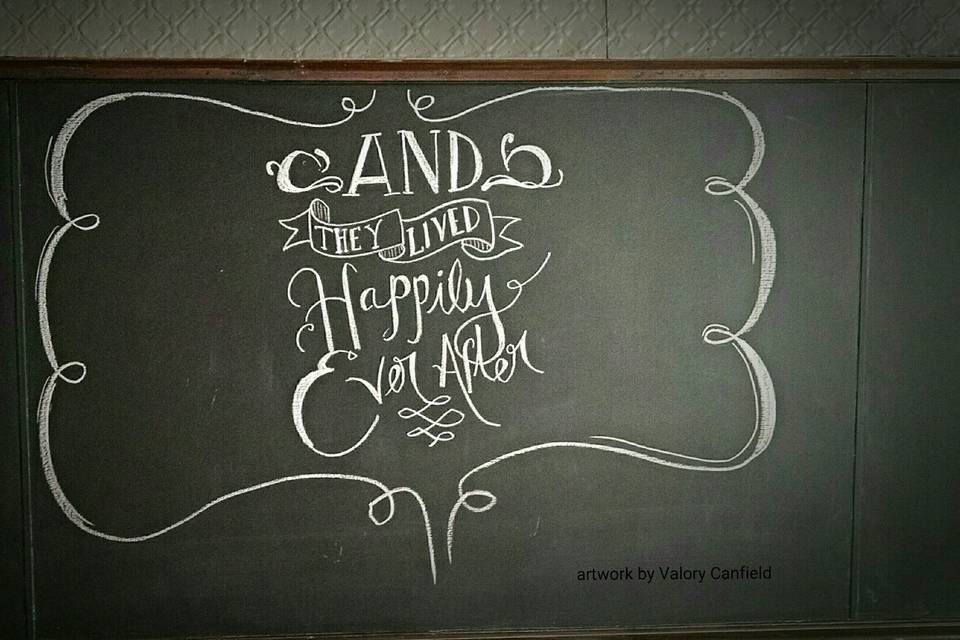 AND
THEY LIVED
Happily
Ever After
artwork by Valory Canfield